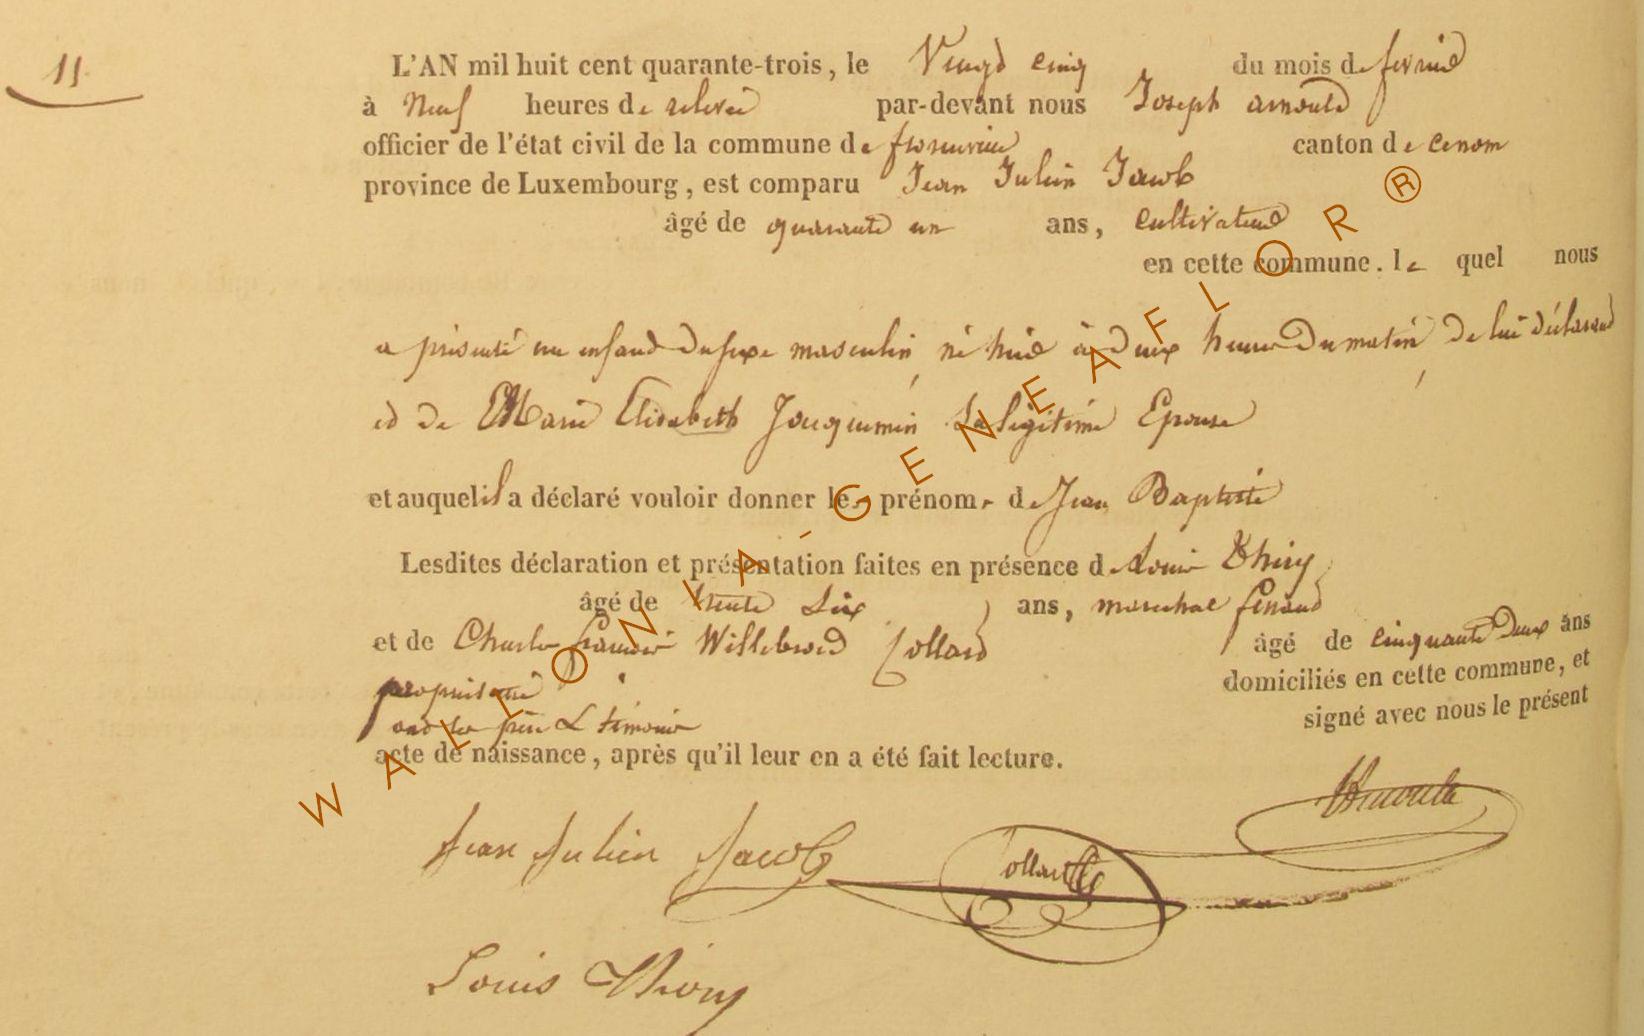 11.
L'AN mil huit cent quarante-trois, le Vingd cinq du mois de fevrié
à neuf heures de relevée par-devant nous Joseph arnould
officier de l'état civil de la commune de canton de
province de Luxembourg, est comparu Jean Julien Jacob
âgé de quarante un ans, cultivateur
en cette commune. le quel nous
a présenté un enfand du sexe masculin, né hier à deux heures du matin de lui déclarand
ed de Marie Elisabeth Jacquemin, Sa légitime Epouse
et auquel il a déclaré vouloir donner les prénoms de Jean Baptiste
Lesdites déclaration et présentation faites en présence de Louis Thiry
âgé de trente Six ans, marechal ferrand
et de Charles Willebrord Collard âgé de cinquante deux ans
propriétaire domiciliés en cette commune, et
ond les père & témoins signé avec nous le présent
acte de naissance, après qu'il leur en a été fait lecture.
Jean Julien Jacob
Collard
Arnould
Louis Thiry
WALLONIA-GENEAFLOR®